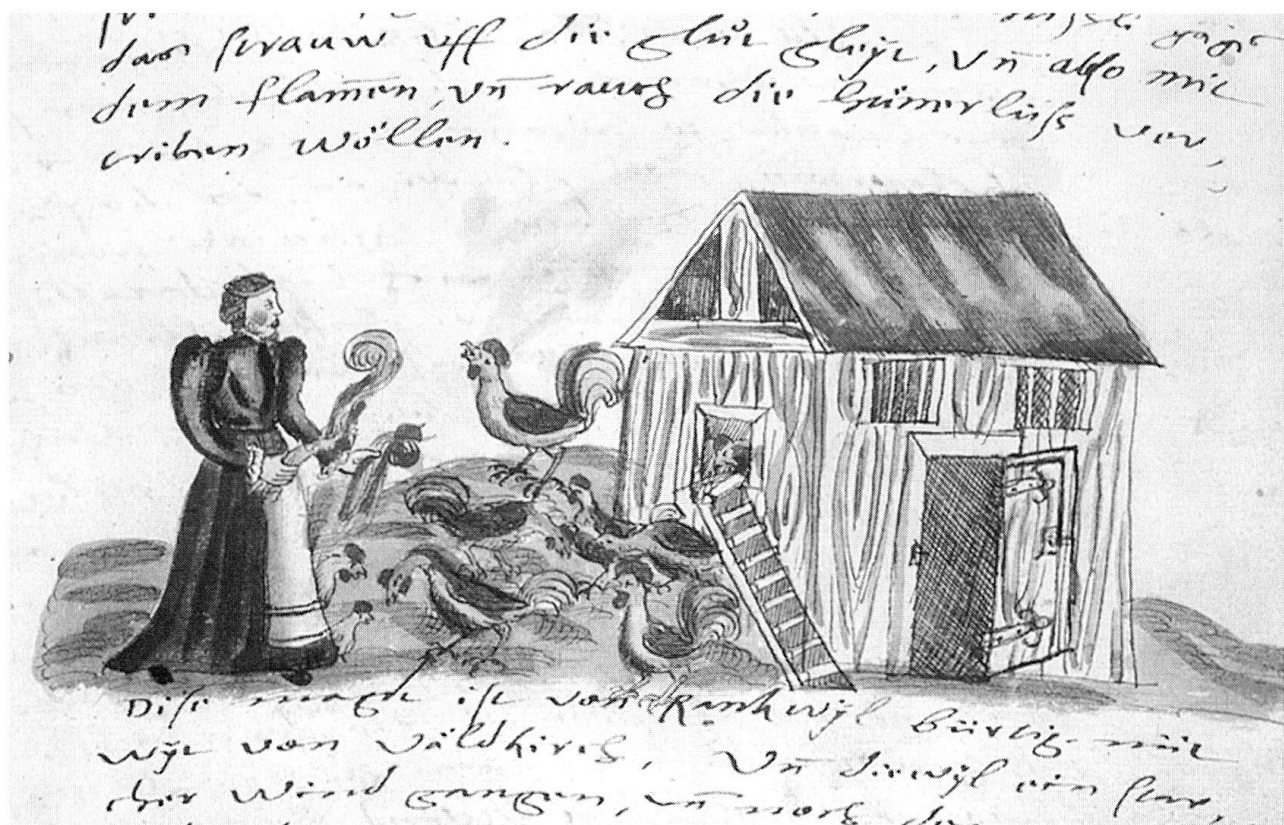 das strauw uff die glůt gleyt, vn̄ also mit
dem flam̄en, vn̄ rauch die hünerlüss ver,
triben wöllen.
Dise magt ist von Rankwyl bürtig, nüt
wyt von Väldkirch, Vn̄ diewyl ein star,
cher wind gangen, vn̄ noch